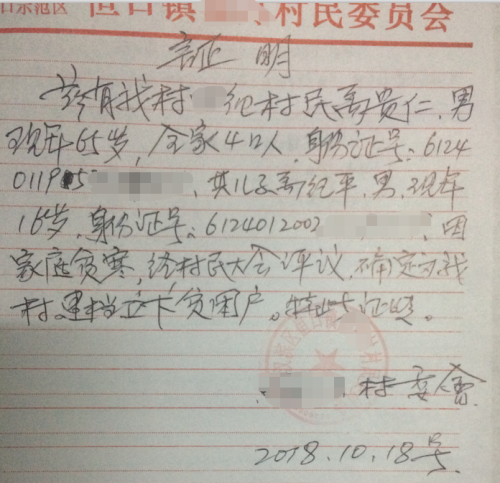 口示范区 恒口镇 村民委员会
证明
兹有我村 组村民 贵仁,男
现年65岁,全家4口人,身份证号:6124
011953 ,其儿子 纪平,男,现年
16岁,身份证号:6124012002 ,因
家庭贫寒,经村民大会评议,确定为我
村建档立卡贫困户。特此证明。
村委会
2018.10.18号